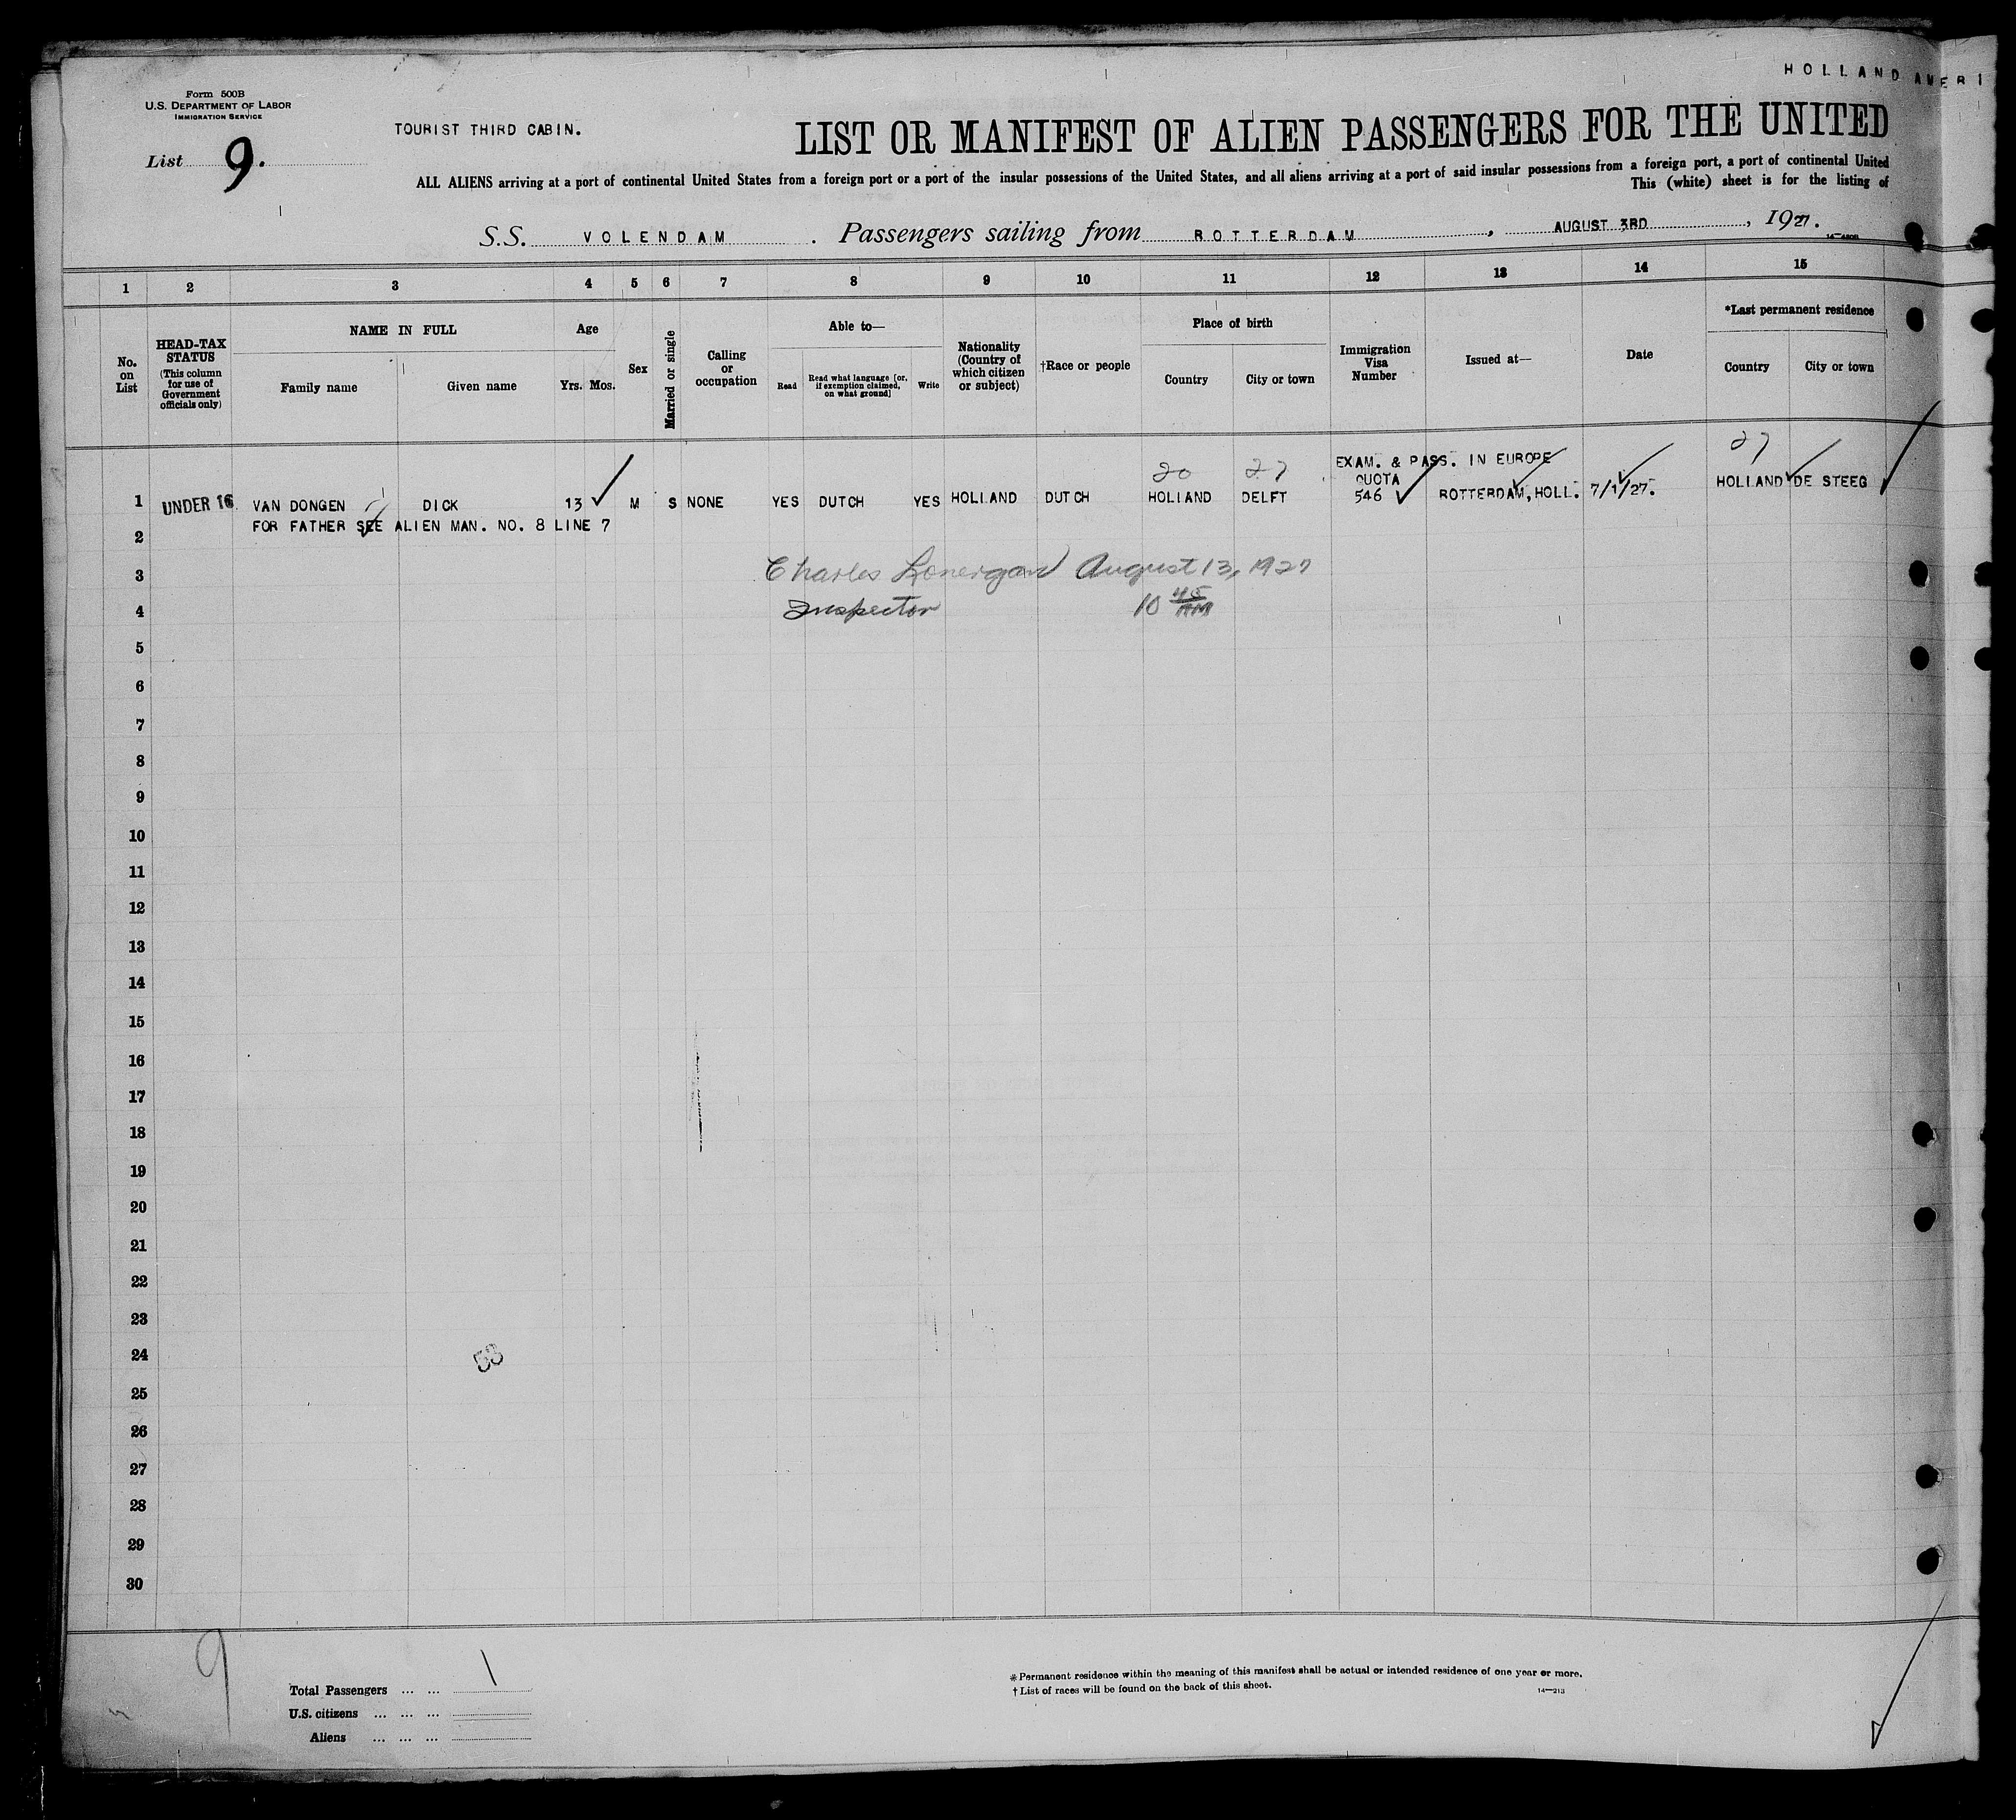 HOLLAND AMERI
Form 500B
U.S. DEPARTMENT OF LABOR
IMMIGRATION SERVICE
TOURIST THIRD CABIN.
List 9.
LIST OR MANIFEST OF ALIEN PASSENGERS FOR THE UNITED
ALL ALIENS arriving at a port of continental United States from a foreign port or a port of the insular possessions of the United States, and all aliens arriving at a port of said insular possessions from a foreign port, a port of continental United
This (white) sheet is for the listing of
S.S. VOLENDAM. Passengers sailing from ROTTERDAM, AUGUST 3RD, 1927.
1 2 3 4 5 6 7 8 9 10 11 12 13 14 15
No. on List
HEAD-TAX STATUS
(This column for use of Government officials only)
NAME IN FULL
Family name
Given name
Age
Yrs. Mos.
Sex
Married or single
Calling or occupation
Able to—
Read
Read what language [or, if exemption claimed, on what ground]
Write
Nationality (Country of which citizen or subject)
†Race or people
Place of birth
Country
City or town
Immigration Visa Number
Issued at—
Date
*Last permanent residence
Country
City or town
20 27 EXAM. & PASS. IN EUROPE 27
QUOTA
1 UNDER 16 VAN DONGEN DICK 13 M S NONE YES DUTCH YES HOLLAND DUTCH HOLLAND DELFT 546 ROTTERDAM, HOLL. 7/1/27. HOLLAND DE STEEG
FOR FATHER SEE ALIEN MAN. NO. 8 LINE 7
2
3 Charles Lonergan August 13, 1927
4 Inspector 10 45 AM
5
6
7
8
9
10
11
12
13
14
15
16
17
18
19
20
21
22
23
24
53
25
26
27
28
29
30
9
Total Passengers ... ... 1
U.S. citizens ... ... ...
Aliens ... ... ...
* Permanent residence within the meaning of this manifest shall be actual or intended residence of one year or more.
† List of races will be found on the back of this sheet.
14—213